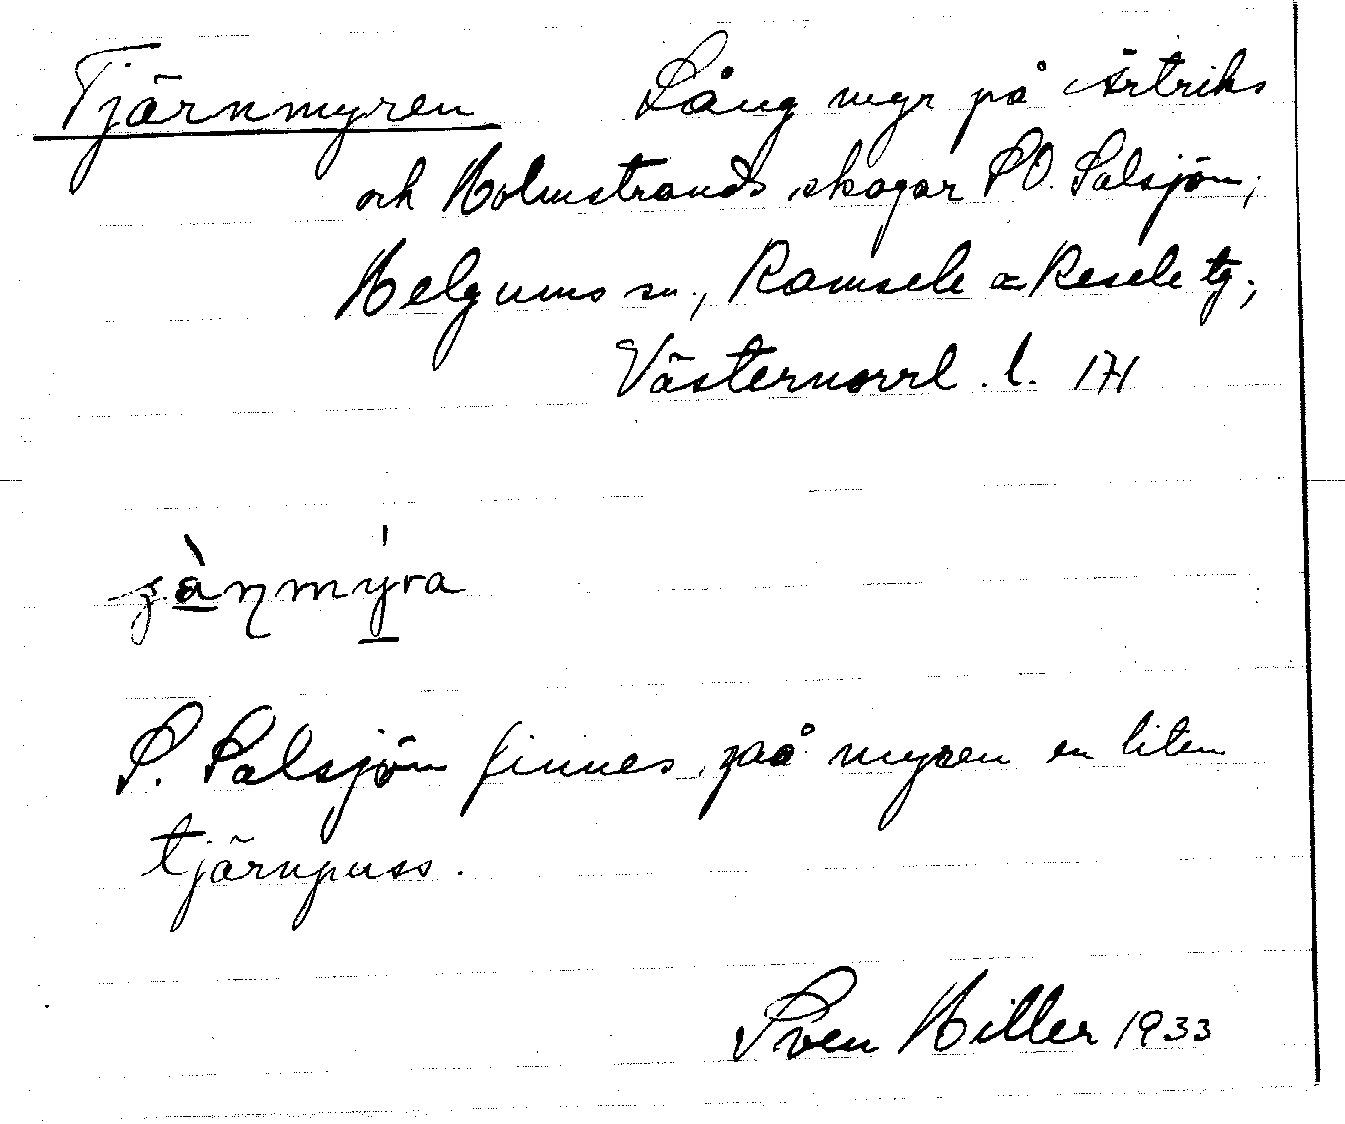 Tjärnmyren Lång myr på Ärtriks
och Holmstrands skogar SO. Salsjön,
Helgums sn., Ramsele o Resele tg;
Västernorrl. l. 171
S. Salsjön finnes på myren en liten
tjärnpuss.
Sven Hiller 1933